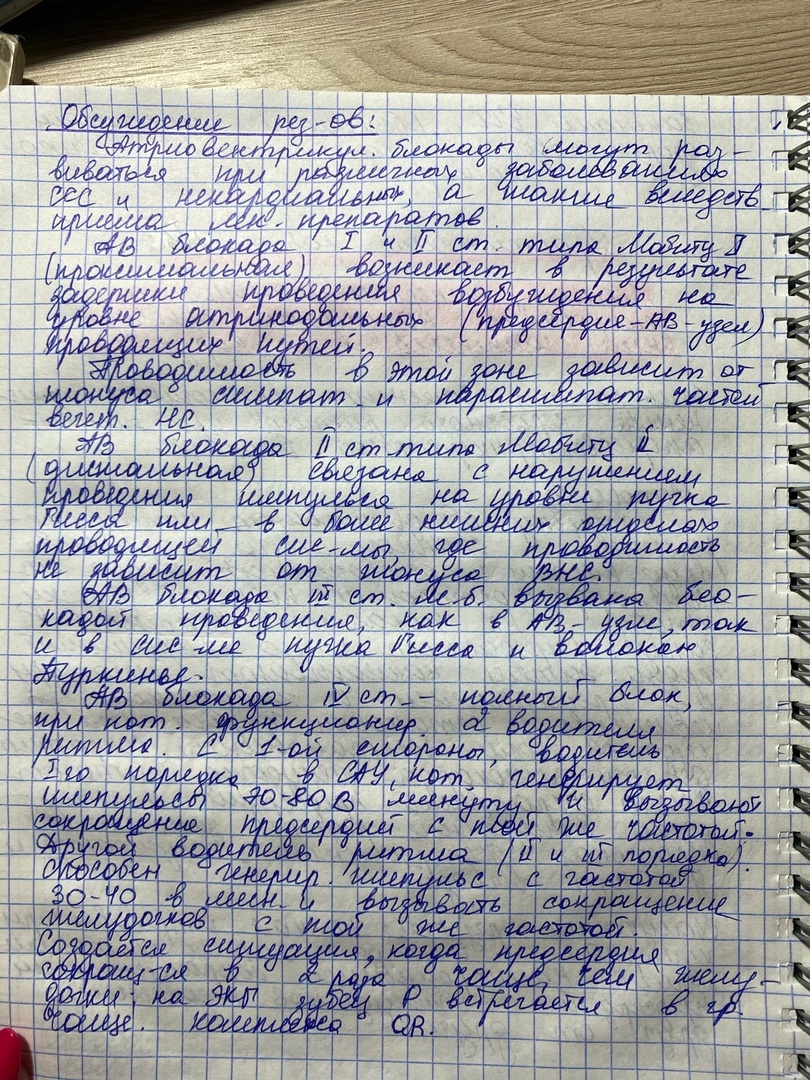 Обсуждение рез-ов:
Атриовентрикул. блокады могут раз-
виваться при различных заболеваниях
ССС и некардиальных, а также вследств.
приёма лек. препаратов.
АВ блокада I и II ст. типа Мобитц II
(проксимальная) возникает в результате
задержки проведения возбуждения на
уровне атринодальных (предсердия-АВ-узел)
проводящих путей.
Проводимость в этой зоне зависит от
тонуса симпат. и парасимпат. частей
вегет. НС.
АВ блокада II ст. типа Мобитц II
(дистальная) связана с нарушением
проведения импульса на уровне пучка
Гисса или в более нижних отделах
проводящей сис-мы, где проводимость
не зависит от тонуса ВНС.
АВ блокада III ст. м.б. вызвана бло-
кадой проведения, как в АВ-узле, так
и в сис-ме пучка Гисса и волокон
Пуркинье.
АВ блокада IV ст. - полный блок,
при кот. функционир. 2 водителя
ритма. С 1-ой стороны, водитель
I го порядка в САУ, кот. генерирует
импульсы 70-80 в минуту и вызывают
сокращение предсердий с той же частотой.
Другой водитель ритма (II и III порядка).
способен генерир. импульс с частотой
30-40 в мин. и вызывать сокращение
желудочков с той же частотой.
Создаётся ситуация, когда предсердия
сокращ-ся в 2 раза чаще, чем желу-
дочки; на ЭКГ зубец P встречается в гр.
чаще. комплекса QR.